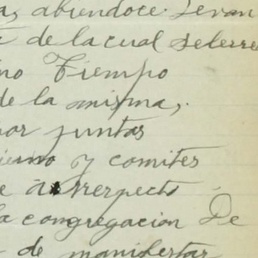 abiendoce levan
de la cual selerre
no Tiempo
de la misma,
por juntas
y comites
respecto
a congregacion De
de manifestar